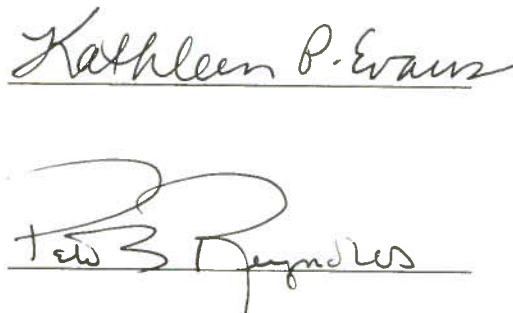 Kathleen P. Evans
Peter B Reynolds